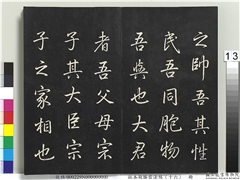 之帥吾其性
民吾同胞物
吾與也大君
者吾父母宗
子其大臣宗
子之家相也
13